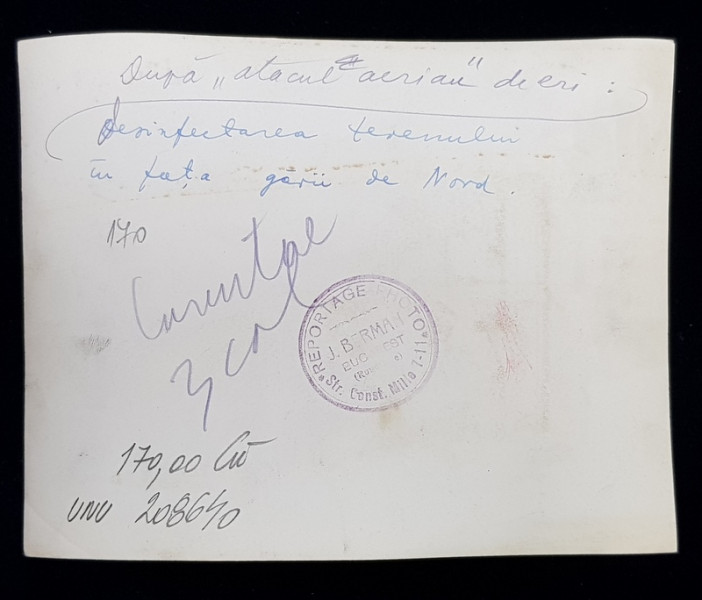 După „atacul aerian" de eri :
Desinfectarea terenului
în fața gării de Nord.
170
Curentul
3 col
REPORTAGE PHOTO
J. BERMAN
BUCAREST
Str. Const. Mille 7-11
170,00
UNU 208640